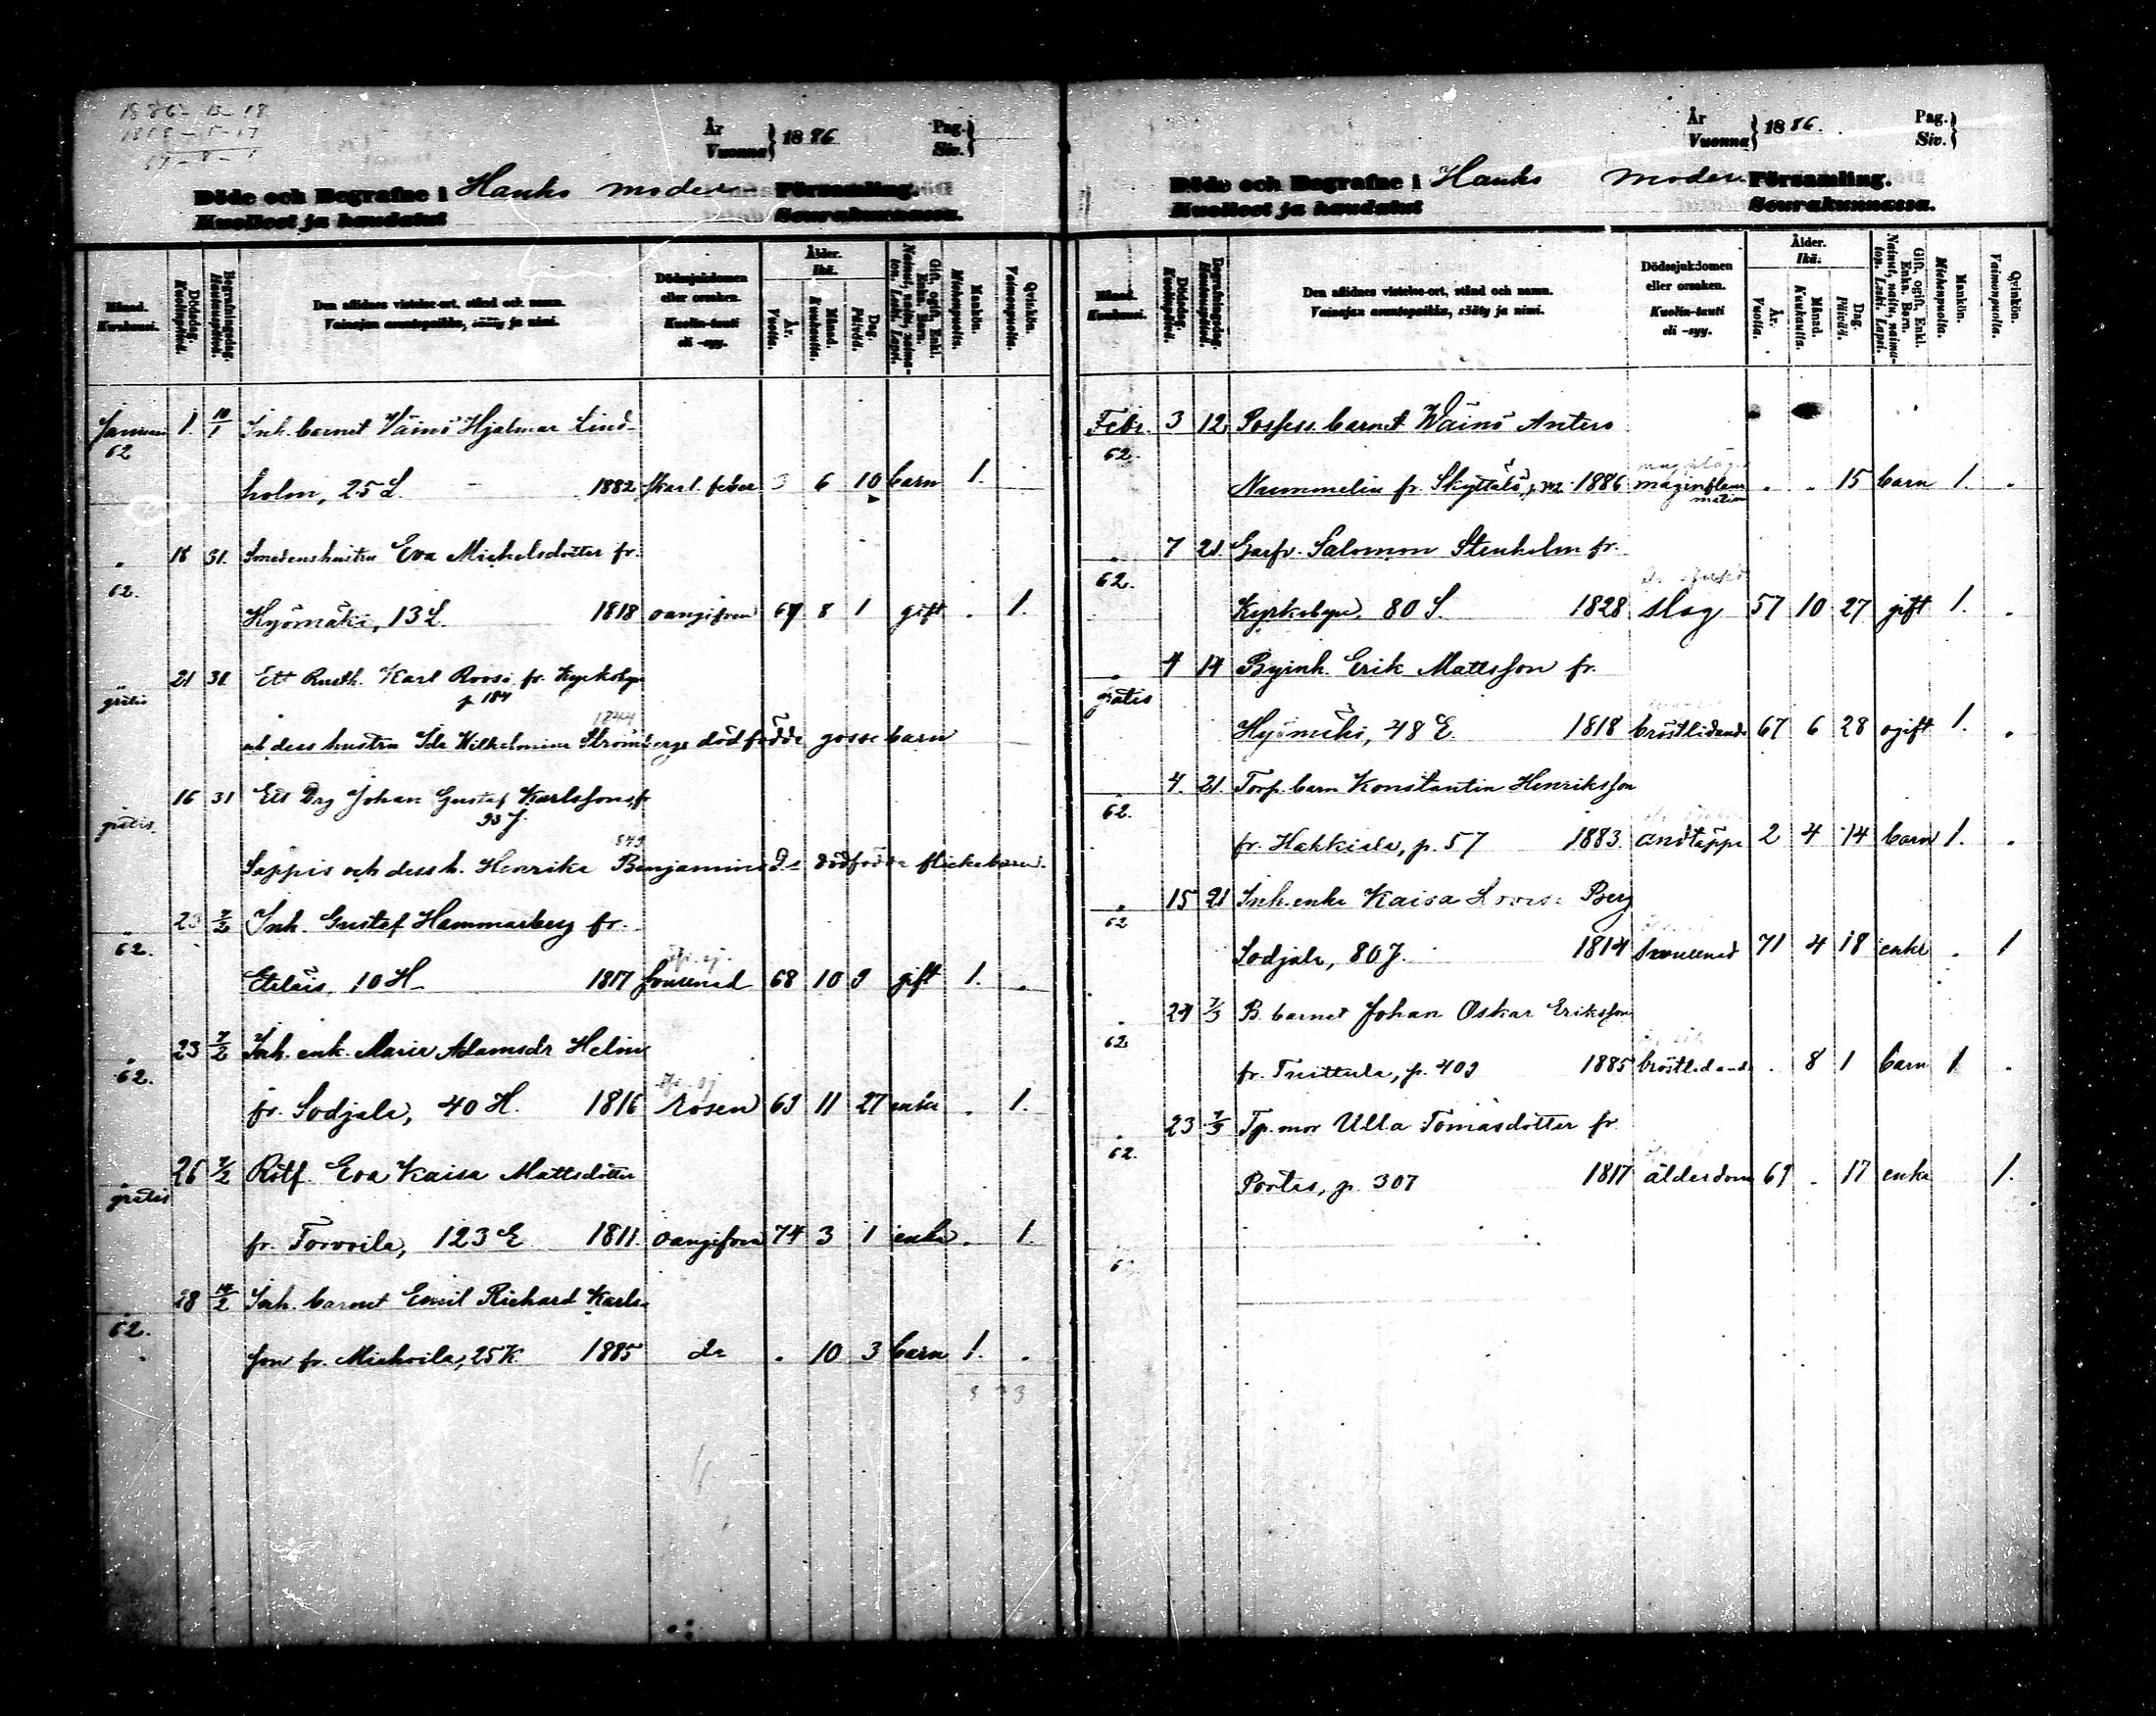 1886-13-18
År
Vuonna } 1886
Pag.
Siv. }
Döde och Begrafne i Hauho moder Församling.
Kuolleet ja haudatut Seurakunnassa.
Månad.
Kuukausi.
Dödsdag.
Kuolinpäivä.
Begrafningsdag.
Hautauspäivä.
Den aflidnes vistelse-ort, stånd och namn.
Vainajan asuntopaikka, sääty ja nimi.
Dödssjukdomen
eller orsaken.
Kuolin-tauti
eli -syy.
Ålder.
Ikä.
År.
Vuotta.
Månad.
Kuukautta.
Dag.
Päivää.
Gift, ogift, Enkl.
Enka. Barn.
Nainut, naitu, naima-
ton. Leski. Lapsi.
Mankön.
Miehenpuolta.
Qvinkön.
Vaimonpuolta.
Januari 1. 10/1 Inh. barnet Väinö Hjalmar Lind-
62
holm, 25 L. 1882 Skarl. feber 3 6 10 barn 1.
18 31. Smedenshustru Eva Michelsdotter fr.
62.
Hyömäki, 13 L. 1818 oangifven 67 8 1 gift . 1.
21 31 Ett Rusth. Karl Roosi fr. Kyrkobyn
gratis p 184
1844
och dess hustru Ida Wilhelmina Strömbergs dödfödde gossebarn
16 31 Ett Drg Johan Gustaf Karlssons fr
gratis. 93 J.
849
Sappis och dess h. Henrika Benjaminsd:s dödfödda flickebarn.
23 7/2 Inh. Gustaf Hammarberg fr.
62.
Eteläis, 10 H. 1817 68 10 9 gift 1. .
23 7/2 Inh. enk. Maria Adamsdr Helin
62.
fr. Sodjala, 40 H. 1816 rosen 69 11 27 enka . 1.
26 7/2 Rotf. Eva Kaisa Mattsdotter
gratis
fr. Torvoila, 123 E 1811. oangifven 74 3 1 enka . 1.
28 14/2 Inh. barnet Emil Richard Karls-
62.
son fr. Miehoila, 25 K. 1885 do . 10 3 barn 1. .
År
Vuonna } 1886.
Pag.
Siv. }
Döde och Begrafne i Hauho moder Församling.
Kuolleet ja haudatut Seurakunnassa.
Månad.
Kuukausi.
Dödsdag.
Kuolinpäivä.
Begrafningsdag.
Hautauspäivä.
Den aflidnes vistelse-ort, stånd och namn.
Vainajan asuntopaikka, sääty ja nimi.
Dödssjukdomen
eller orsaken.
Kuolin-tauti
eli -syy.
Ålder.
Ikä.
År.
Vuotta.
Månad.
Kuukautta.
Dag.
Päivää.
Gift, ogift, Enkl.
Enka. Barn.
Nainut, naitu, naima-
ton. Leski. Lapsi.
Mankön.
Miehenpuolta.
Qvinkön.
Vaimonpuolta.
Febr. 3 12 Possess. barnet Wäinö Antero
62.
Nummelin fr. Skyttälä, p. 342 1886 maginflam
mation . . 15 barn 1. .
7 21. Garfv. Salomon Stenholm fr.
62.
Kyrkobyn, 80 S. 1828 slag 57 10 27 gift 1. .
4 14 Byinh. Erik Mattsson fr.
gratis
Hyömäki, 48 E. 1818 bröstlidande 67 6 28 ogift 1. .
4. 21. Torp. barn Konstantin Henriksson
62.
fr. Hakkiala, p. 57 1883. andtäppa 2 4 14 barn 1. .
15 21 Inh. enka Kaisa Lovisa Berg
62
Sodjala, 80 J. 1814 71 4 18 enka . 1
24 7/3 B. barnet Johan Oskar Eriksson
62
fr. Tuittula, p. 409 1885 bröstlidande . 8 1 barn 1 .
23 7/3 Tp. mor Ulla Tomasdotter fr.
62.
Portas, p. 307 1817 ålderdom 69 . 17 enka 1.